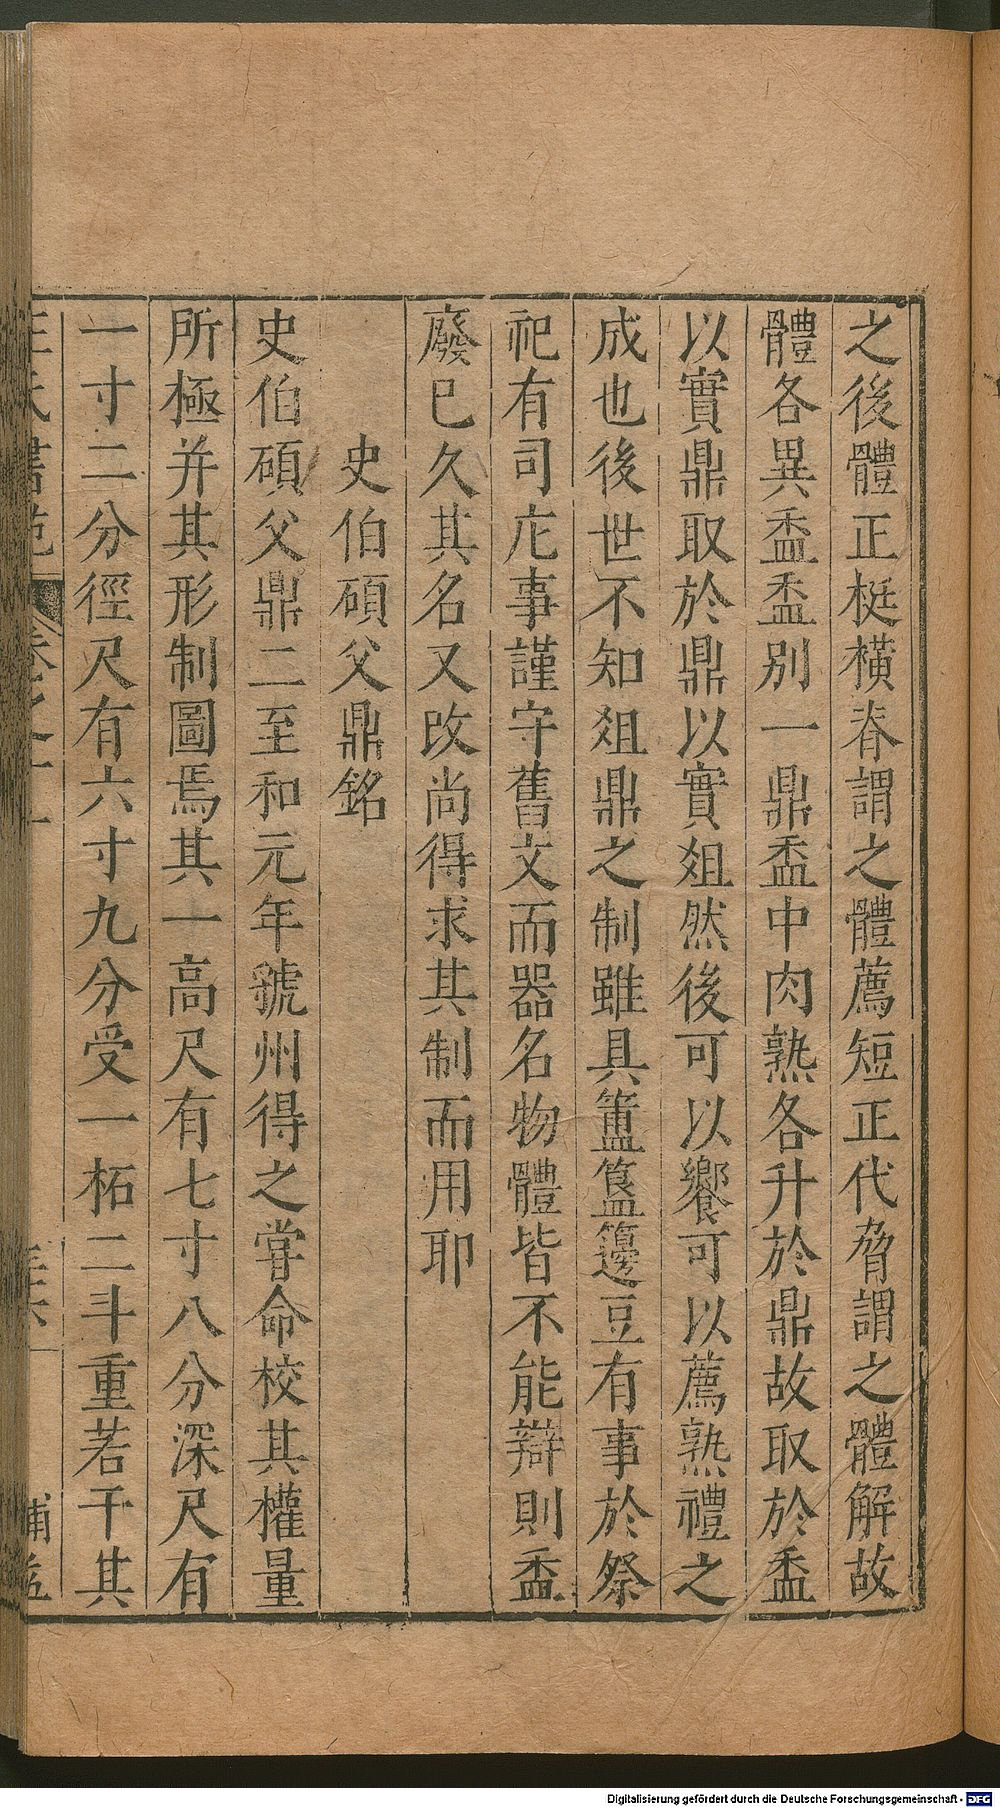 之後體正梃橫脊謂之體薦短正代脅謂之體解故
體各異盉盉別一鼎盉中肉熟各升於鼎故取於盉
以實鼎取於鼎以實爼然後可以饗可以薦熟禮之
成也後世不知爼鼎之制雖具簠簋籩豆有事於祭
祀有司庀事謹守舊文而器名物體皆不能辯則盉
廢已久其名又改尚得求其制而用耶
史伯碩父鼎銘
史伯碩父鼎二至和元年虢州得之嘗命校其權量
所極并其形制圖焉其一高尺有七寸八分深尺有
一寸二分徑尺有六寸九分受一柘二斗重若干其
王氏書苑 卷之十一
Digitalisierung gefördert durch die Deutsche Forschungsgemeinschaft - DFG